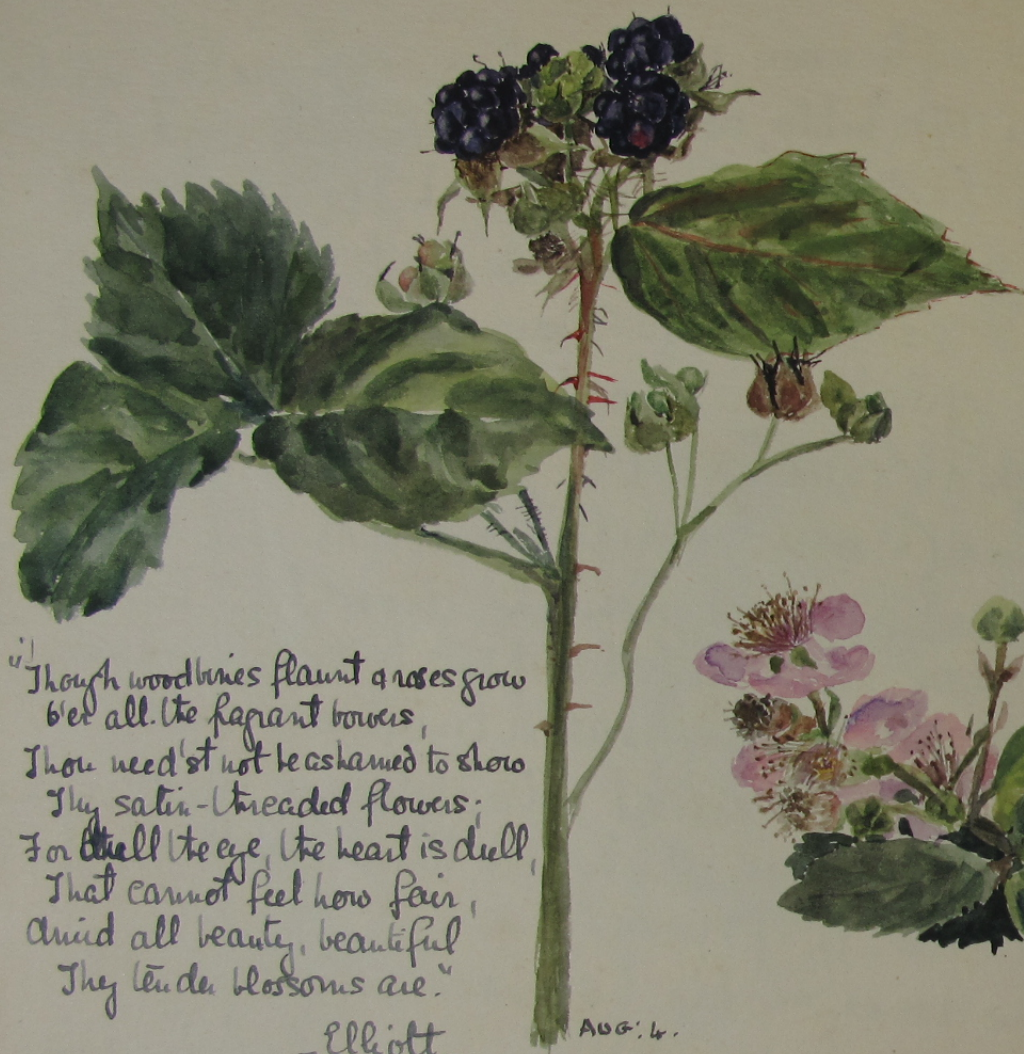 "Though woodbines flaunt & roses grow
O'er all the fragrant bowers,
Thou need'st not be ashamed to show
Thy satin-threaded flowers;
For dull the eye, the heart is dull,
That cannot feel how fair,
Amid all beauty, beautiful
Thy tender blossoms are."
_Elliott
AUG: 4.